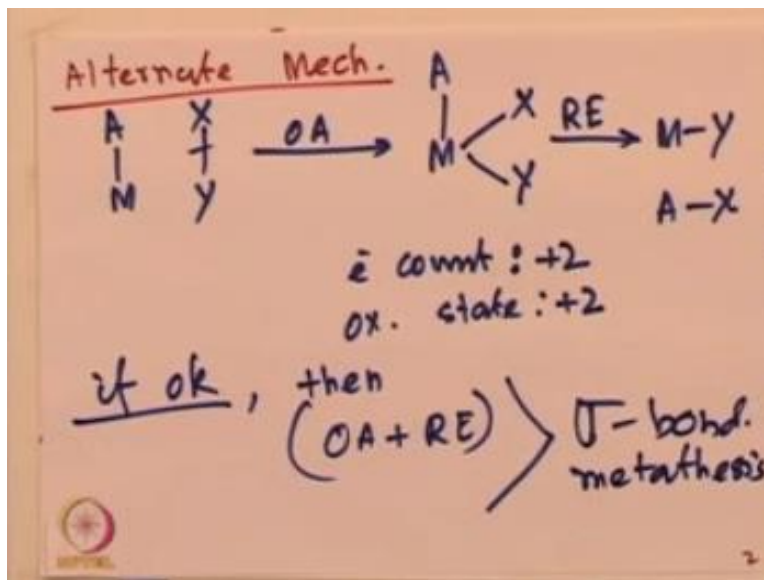 Alternate Mech.
A X A
| + OA | X RE M-Y
M Y M Y A-X
ē count : +2
ox. state : +2
if ok, then
(OA + RE) > σ-bond.
metathesis
NPTEL
2